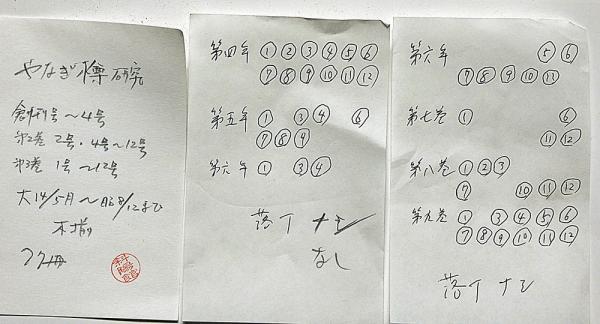 やなぎ樽研究
創刊号〜4号
第2巻 2号・4号〜12号
第3巻 1号〜12号
大14/5月〜昭8/12まで
不揃
第四年 ① ② ③ ④ ⑤ ⑥
⑦ ⑧ ⑨ ⑩ ⑪ ⑫
第五年 ① ③ ④ ⑥
⑦ ⑧ ⑨
第六年 ① ③ ④
落丁 ナシ
なし
第六年 ⑤ ⑥
⑦ ⑧ ⑨ ⑩ ⑪
第七巻 ① ⑥
⑪ ⑫
第八巻 ① ② ③
⑦ ⑩ ⑪ ⑫
第九巻 ① ③ ④ ⑤ ⑥
⑦ ⑧ ⑨ ⑩ ⑪ ⑫
落丁 ナシ